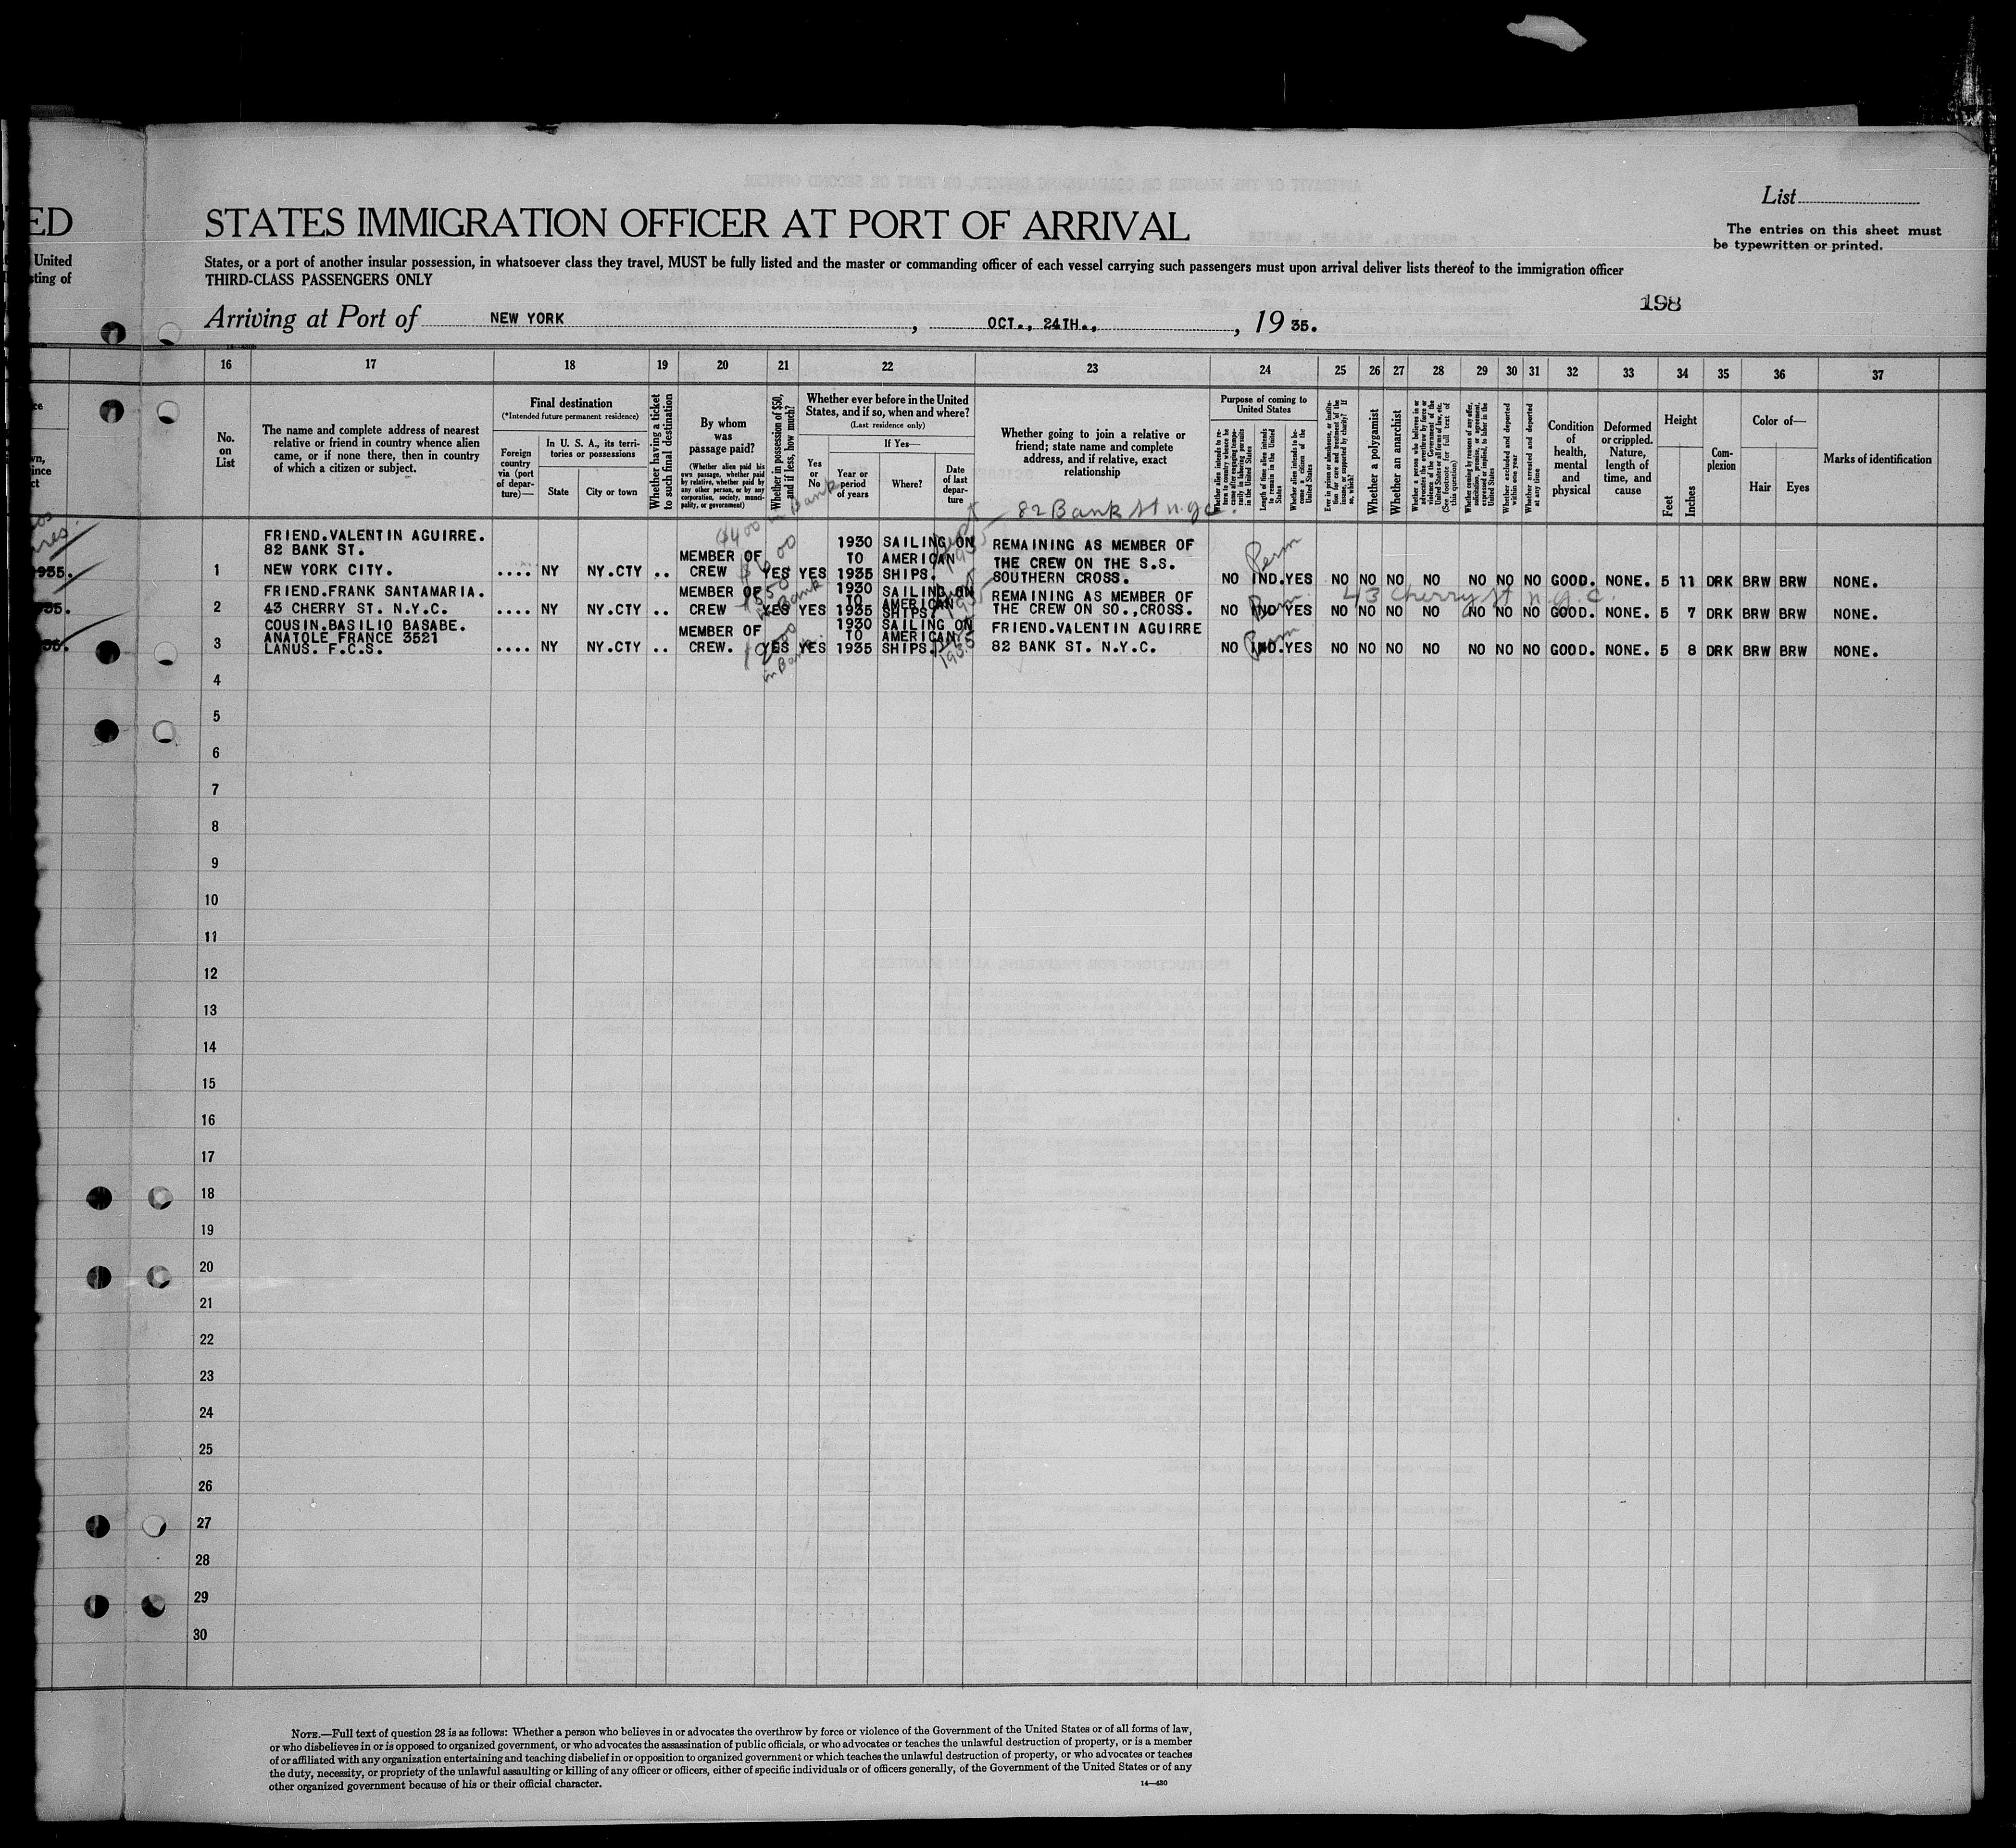 ED
United
ting of
List
STATES IMMIGRATION OFFICER AT PORT OF ARRIVAL
The entries on this sheet must
be typewritten or printed.
States, or a port of another insular possession, in whatsoever class they travel, MUST be fully listed and the master or commanding officer of each vessel carrying such passengers must upon arrival deliver lists thereof to the immigration officer
THIRD-CLASS PASSENGERS ONLY
198
Arriving at Port of NEW YORK, OCT., 24TH., , 19 35.
16 17 18 19 20 21 22 23 24 25 26 27 28 29 30 31 32 33 34 35 36 37
No.
on
List
The name and complete address of nearest
relative or friend in country whence alien
came, or if none there, then in country
of which a citizen or subject.
Final destination
(*Intended future permanent residence)
Foreign
country
via (port
of depar-
ture)—
In U. S. A., its terri-
tories or possessions
State
City or town
Whether having a ticket
to such final destination
By whom
was
passage paid?
(Whether alien paid his
own passage, whether paid
by relative, whether paid by
any other person, or by any
corporation, society, munici-
pality, or government)
Whether in possession of $50,
and if less, how much?
Whether ever before in the United
States, and if so, when and where?
(Last residence only)
Yes
or
No
If Yes—
Year or
period
of years
Where?
Date
of last
depar-
ture
Whether going to join a relative or
friend; state name and complete
address, and if relative, exact
relationship
Purpose of coming to
United States
Whether alien intends to re-
turn to country whence he
came after engaging tempo-
rarily in laboring pursuits
in the United States
Length of time alien intends
to remain in the United
States
Whether alien intends to be-
come a citizen of the
United States
Ever in prison or almshouse, or institu-
tion for care and treatment of the
insane, or supported by charity? If
so, which?
Whether a polygamist
Whether an anarchist
Whether a person who believes in or
advocates the overthrow by force or
violence of the Government of the
United States or all forms of law, etc.
(See footnote for full text of
this question)
Whether coming by reason of any offer,
solicitation, promise, or agreement,
expressed or implied, to labor in the
United States
Whether excluded and deported
within one year
Whether arrested and deported
at any time
Condition
of
health,
mental
and
physical
Deformed
or crippled.
Nature,
length of
time, and
cause
Height
Feet
Inches
Com-
plexion
Color of—
Hair
Eyes
Marks of identification
82 Bank St n.y.c
$400 in Bank
1 FRIEND.VALENTIN AGUIRRE.
82 BANK ST.
NEW YORK CITY.
.... NY NY.CTY ..
MEMBER OF
CREW
YES YES
1930
TO
1935
SAILING ON
AMERICAN
SHIPS.
REMAINING AS MEMBER OF
THE CREW ON THE S.S.
SOUTHERN CROSS.
Perm
NO IND. YES NO NO NO NO NO NO NO GOOD. NONE. 5 11 DRK BRW BRW NONE.
1935.
2 FRIEND.FRANK SANTAMARIA.
43 CHERRY ST. N.Y.C.
.... NY NY.CTY ..
MEMBER OF
CREW
in Bank
YES YES
1930
TO
1935
SAILING ON
AMERICAN
SHIPS.
REMAINING AS MEMBER OF
THE CREW ON SO.,CROSS.
43 Cherry St n.y.c.
NO IND YES NO NO NO NO NO NO NO GOOD. NONE. 5 7 DRK BRW BRW NONE.
35.
3 COUSIN.BASILIO BASABE.
ANATOLE FRANCE 3521
LANUS. F.C.S.
.... NY NY.CTY ..
MEMBER OF
CREW.
in Bank.
YES YES
1930
TO
1935
SAILING ON
AMERICAN
SHIPS.
1935
FRIEND.VALENTIN AGUIRRE
82 BANK ST. N.Y.C.
Perm
NO IND. YES NO NO NO NO NO NO NO GOOD. NONE. 5 8 DRK BRW BRW NONE.
35.
4
5
6
7
8
9
10
11
12
13
14
15
16
17
18
19
20
21
22
23
24
25
26
27
28
29
30
NOTE.—Full text of question 28 is as follows: Whether a person who believes in or advocates the overthrow by force or violence of the Government of the United States or of all forms of law,
or who disbelieves in or is opposed to organized government, or who advocates the assassination of public officials, or who advocates or teaches the unlawful destruction of property, or is a member
of or affiliated with any organization entertaining and teaching disbelief in or opposition to organized government or which teaches the unlawful destruction of property, or who advocates or teaches
the duty, necessity, or propriety of the unlawful assaulting or killing of any officer or officers, either of specific individuals or of officers generally, of the Government of the United States or of any
other organized government because of his or their official character.
14—430